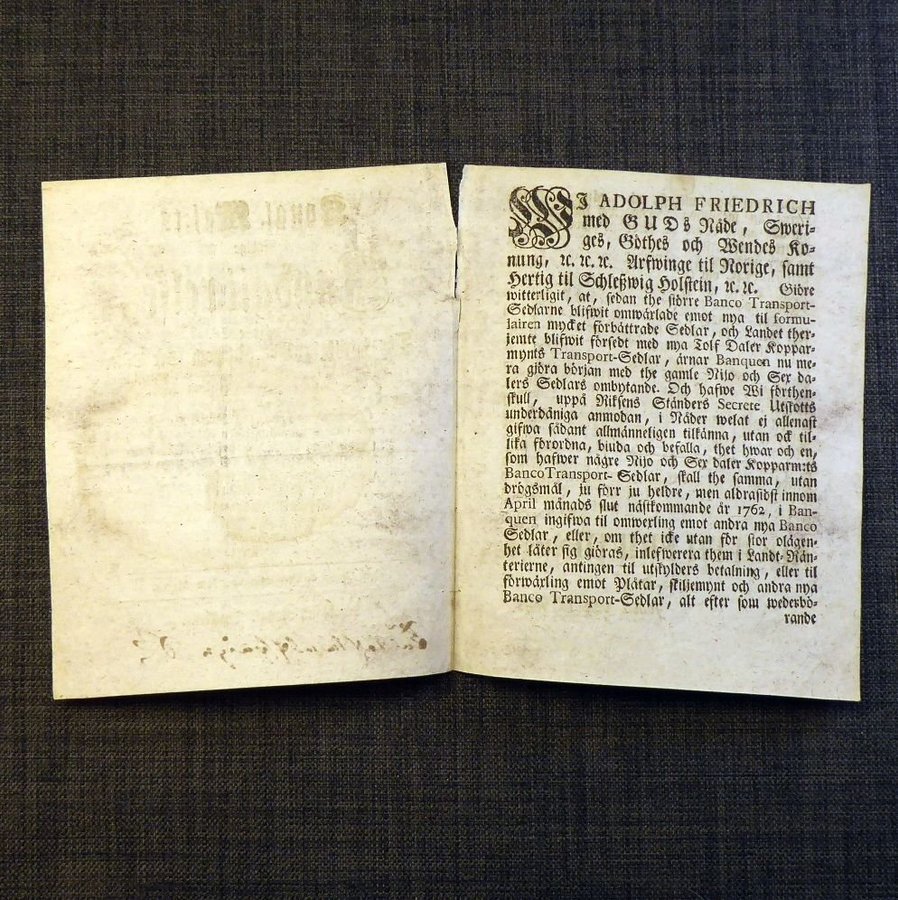 WJ ADOLPH FRIEDRICH
med GUDs Nåde, Sweri-
ges, Göthes och Wendes Ko-
nung, ꝛc. ꝛc. ꝛc. Arfwinge til Norige, samt
Hertig til Schleßwig Holstein, ꝛc. ꝛc. Giöre
witterligit, at, sedan the större Banco Transport-
Sedlarne blifwit omwäxlade emot nya til formu-
lairen mycket förbättrade Sedlar, och Landet ther-
jemte blifwit försedt med nya Tolf Daler Koppar-
mynts Transport-Sedlar, ärnar Banquen nu me-
ra giöra början med the gamle Nijo och Sex da-
lers Sedlars ombytande. Och hafwe Wi förthen-
skull, uppå Riksens Ständers Secrete Utskotts
underdåniga anmodan, i Nåder welat ej allenast
gifwa sådant allmänneligen tilkänna, utan ock til-
lika förordna, biuda och befalla, thet hwar och en,
som hafwer någre Nijo och Sex daler Kopparm:ts
Banco Transport-Sedlar, skall the samma, utan
drögsmål, ju förr ju heldre, men aldrasidst innom
April månads slut nästkommande år 1762, i Ban-
quen ingifwa til omwexling emot andra nya Banco
Sedlar, eller, om thet icke utan för stor olägen-
het låter sig giöras, inlefwerera them i Landt-Rän-
terierne, antingen til utskylders betalning, eller til
förwäxling emot Plåtar, skiljemynt och andra nya
Banco Transport-Sedlar, alt efter som wederbö-
rande